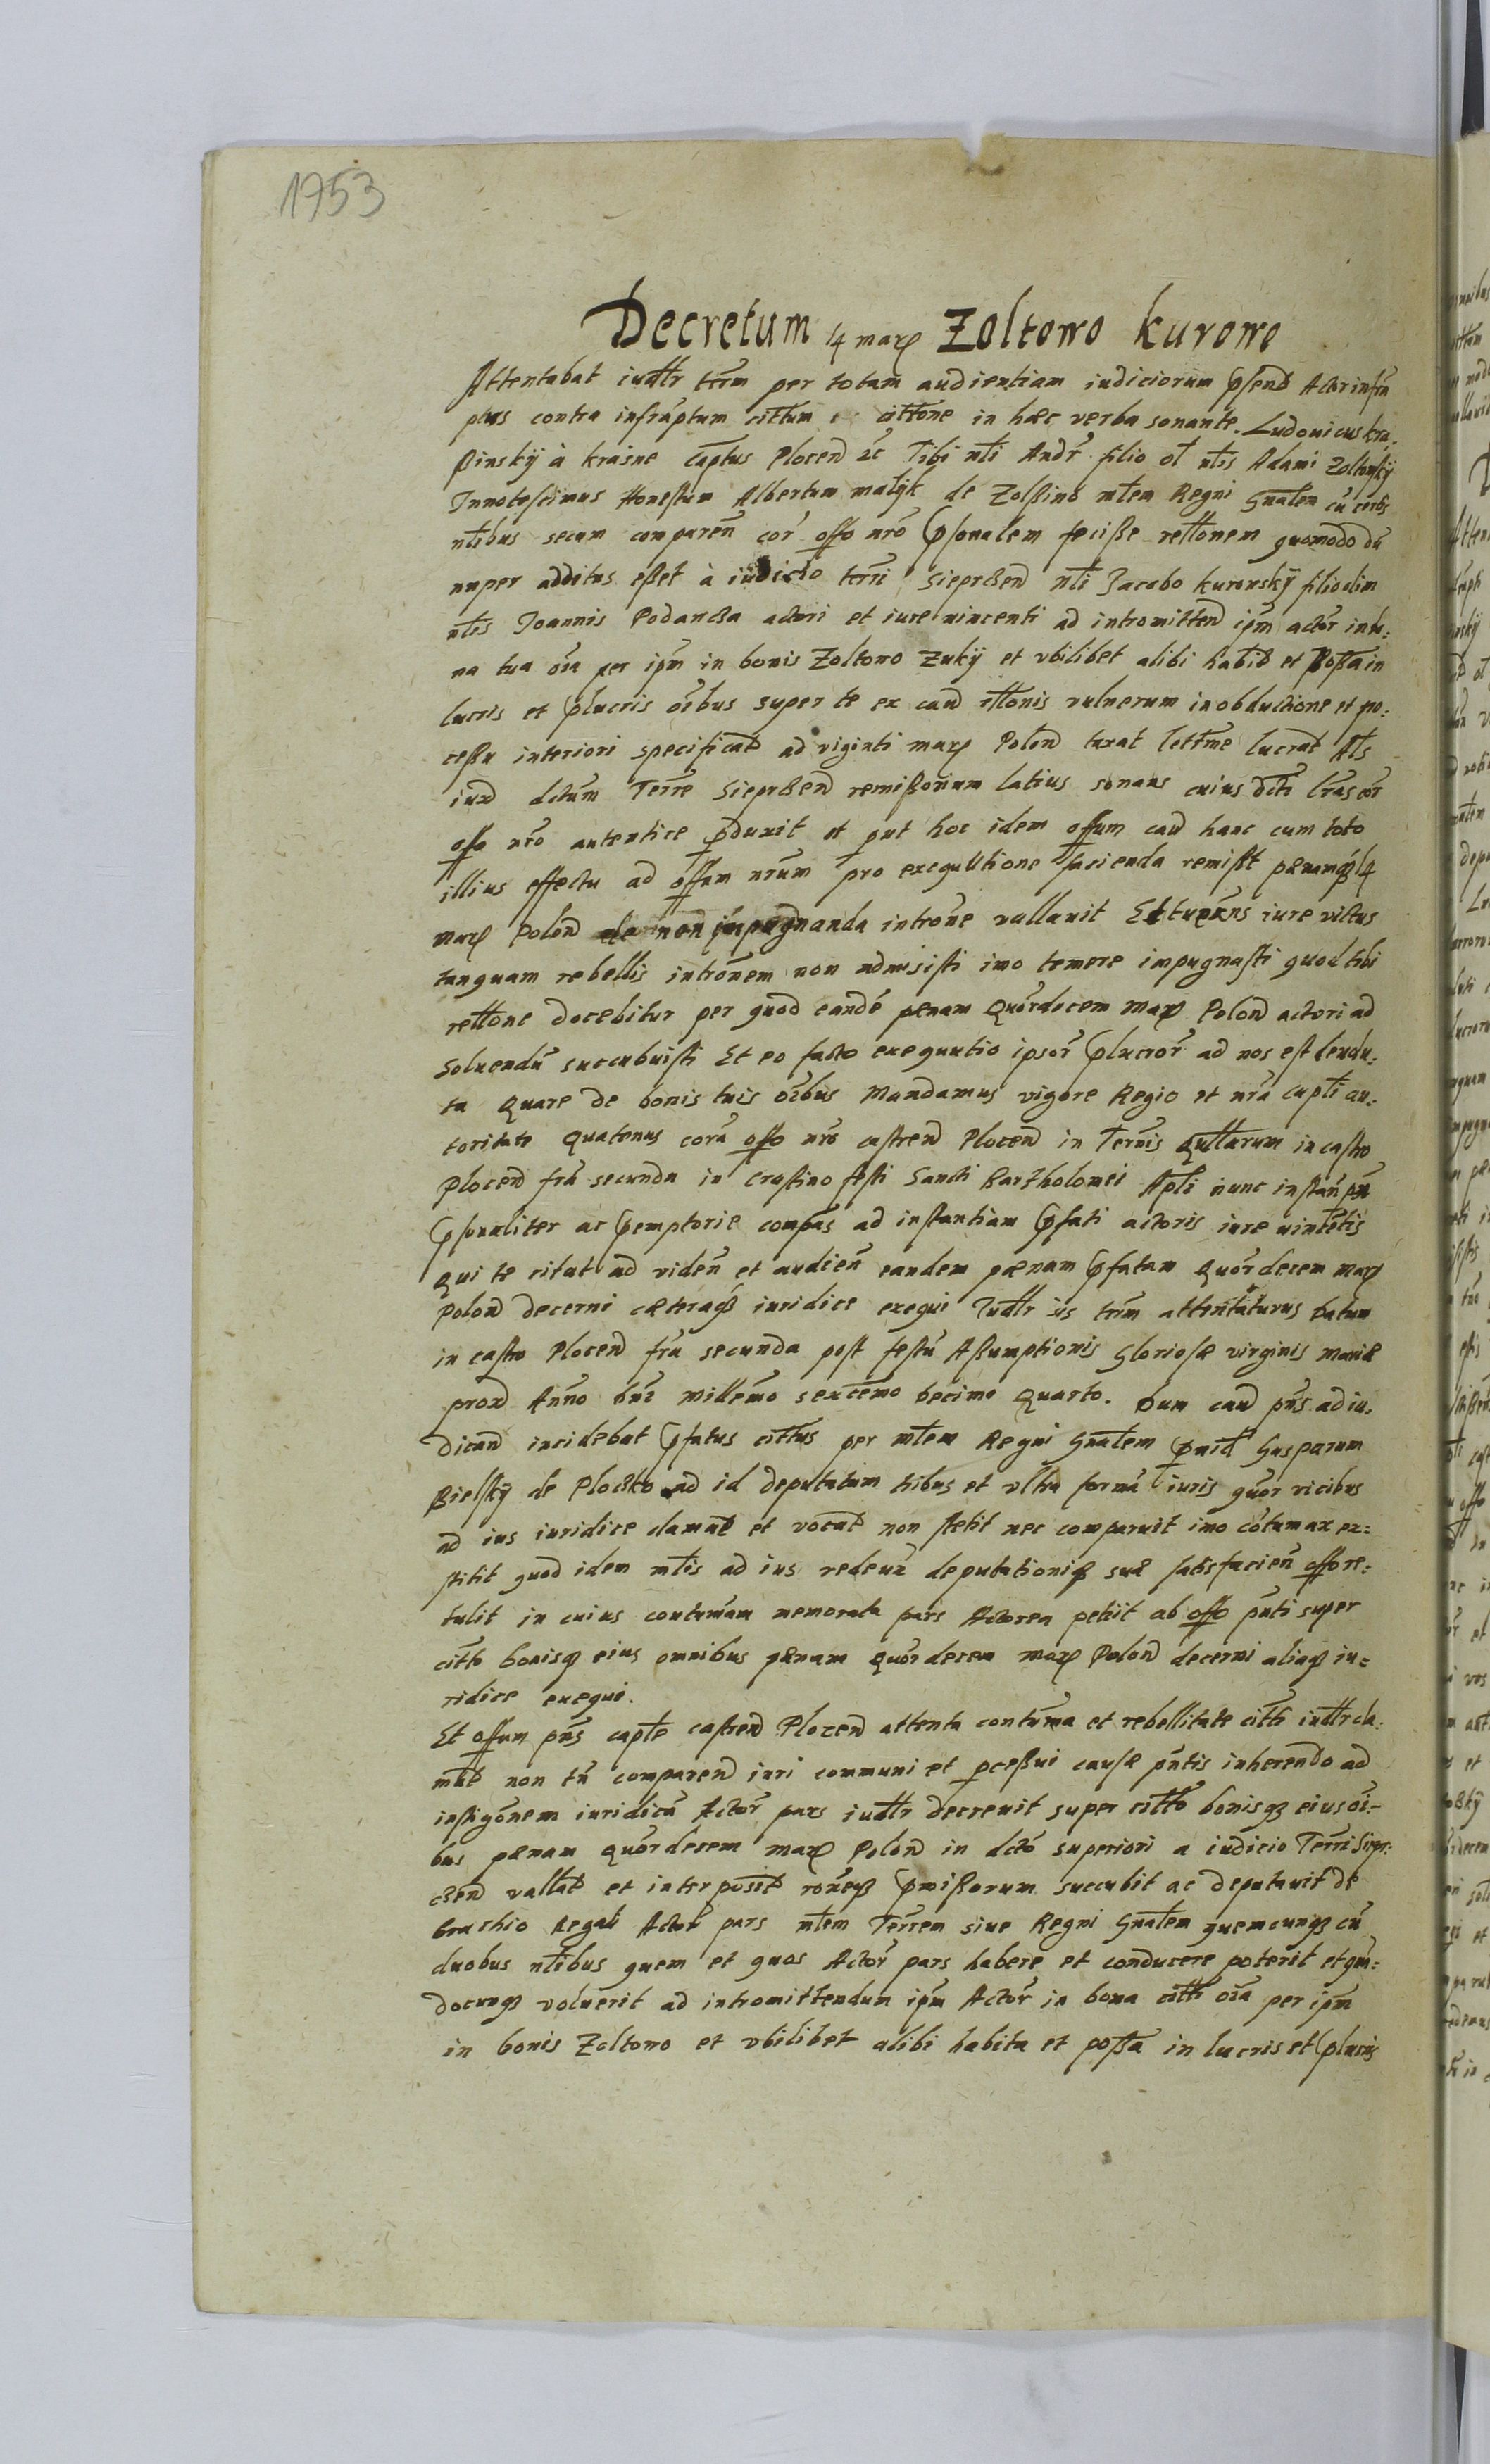 1753
Decretum 14 marz Zoltowo kurowo
Attentabat iudtr term per totam audientiam iudiciorum psend Actor infra
ptus contra infraptum cittum citt̃one in hæc verba sonante. Ludouicus kra.
ßinskÿ à krasne Captus Plocen̄ zc Tibi nłi Andr̃ filio oł nłis Adami Zoltowskÿ
Innotescimus Honestum Albertum matÿk de Zolßino młem Regni Gnalem cũ certis
nłibus secum comparen̄ cor̃ offo nr̃o psonalem fecisse relłonem quomodo dũ
nuper additus esset à iudicio terri Sieprcsen̄ nłi Jacobo kurowskÿ filio olim
nłis Joannis Podancsa actori et iure vincenti ad intromitten̄ ipm̃ actor̃ in bo:
na tua oĩa per ipm̃ in bonis Zoltowo Zukÿ et vbilibet alibi habit̃ et possa in
lucris et plucris oĩbus super te ex cau̅ ittonis vulnerum in obductione et pro:
cessu interiori specificat̃ ad viginti marz Polon̄ taxat lettme lucrat̃ Als
iux̃ dctum̃ Terrẽ Sieprcsen̄ remissorium latius sonans cuius dcti łras cor̃
offo nr̃o autentice produxit et put hoc idem offum cau̅ hanc cum toto
illius effectu ad offum nr̃um pro exequutione facienda remisit pænamqz 14
marz Polon̄ de non impugnanda introne vallauit Et tu pxns iure victus
tanquam rebellis intronem non admisisti imo temere impugnasti quod tibi
relłone docebitur per quod eandẽ pænam Quordecem marz Polon̄ actori ad
soluendũ succubuisti Et eo facto exequutio ipsor̃ plucror̃ ad nos est deuolu:
ta Quare de bonis tuis oĩbus Mandamus vigore Regio et nr̃a capłi au:
toritate Quatenus corã offo nr̃o castren̄ Plocen̄ in Termis Qułłarum in castro
Plocen̄ fr̃ia secunda in Crastino festi Sancti Bartholomei Apłi nunc instan̄
psonaliter ac pemptorie compas ad instantiam pfati actoris iure vincetis
Qui te citat ad viden̄ et audien̄ eandem pænam pfatam Quordecem marz
Polon̄ decerni cæteraqz iuridice exequi Iudtr sis term attentaturus Datum
in castro Plocen̄ fr̃ia secunda post festũ Assumptionis Gloriosæ virginis mariæ
prox̃ Anno Dni Millemo sexcemo Decimo Quarto. Dum cau̅ pñs ad iu.
dican̄ incidebat pfatus cittus per młem Regni Gnałem puid Gasparum
Bielskÿ de Plocsko ad id deputatum tribus et vltra formã iuris quor vicibus
ad ius iuridice clamat̃ et vocat̃ non stetit nec comparuit imo cõtumax ex:
stitit quod idem młis ad ius rediens deputationiqz suæ satisfacien̄ offo re:
tulit in cuius contumam memorata pars Actorea petiit ab offo pñti super
citto bonisqz eius omnibus pænam Quordecem marz Polon̄ decerni aliaqz iu:
ridice exequi.
Et offum pñs capłe castren̄ Plocen̄ attenta contuma et rebellitate citti iudtr cla:
mat̃ non tñ comparen̄ iuri communi et pcessui causæ pñtis inherendo ad
instigonem iuridicã Actor̃ pars iudtr decreuit super citto bonisqz eius oĩ-
bus pænam Quordecem marz Polon̄ in dcto superiori a iudicio Terri Siepr:
csen̄ vallat̃ et interposit̃ roneqz pmissorum succubit ac deputauit de
brachio Regali Actor̃ pars młem Terrem siue Regni Gnałem quemcunqz cũ
duobus nłibus quem et quos Actor̃ pars habere et conducere poterit et qũ:
docunqz voluerit ad intromittendum ipm̃ Actor̃ in bona citti oĩa per ipm̃
in bonis Zoltowo et vbilibet alibi habita et possa in lucris et plucris